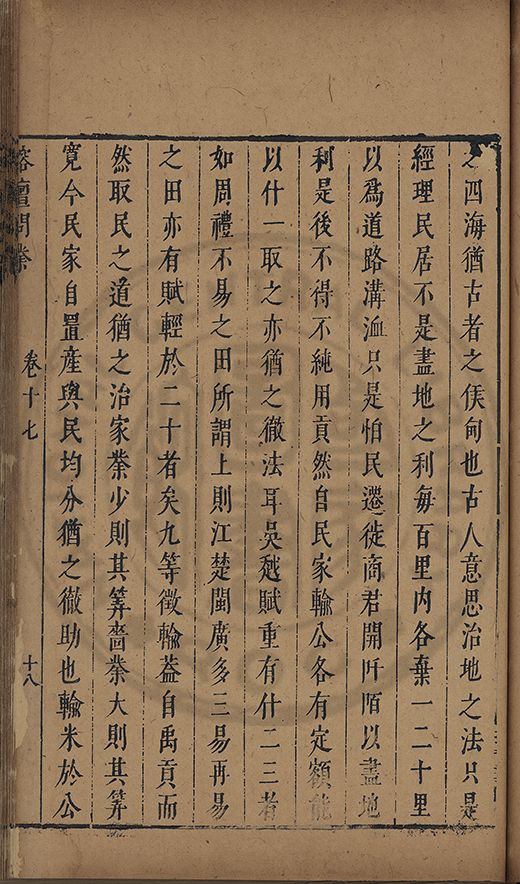 之四海猶古者之侯甸也古人意思治地之法只是
經理民居不是盡地之利每百里内各棄一二十里
以爲道路溝洫只是怕民遷徙商君開阡陌以盡地
利是後不得不純用貢然自民家輸公各有定額能
以什一取之亦猶之徹法耳吳越賦重有什二三者
如周禮不易之田所謂上則江楚閩廣多三易再易
之田亦有賦輕於二十者矣九等徵輸葢自禹貢而
然取民之道猶之治家業少則其筭嗇業大則其筭
寬今民家自置產與民均分猶之徹助也輸米於公
榕壇問業
卷十七
十八